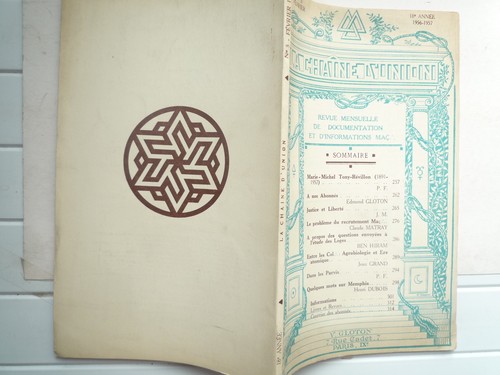 11e ANNÉE
1956-1957
LA CHAÎNE D'UNION
REVUE MENSUELLE
DE DOCUMENTATION
ET D'INFORMATIONS MAÇ
SOMMAIRE
Marie-Michel Tony-Révillon
P. F.
A nos Abonnés 262
Edmond GLOTON
Justice et Liberté 265
J. H.
Le problème du recrutement Maç.
MATHAY
A propos des questions envoyées à
l'étude des Loges 286
BEN HIRAM
Entre les Col Agrobiologie et Ere
atomique 289
GRAND
Dans les Parvis 294
P. F.
Quelques mots sur Memphis 298
Henri DUBOIS
Informations 307
Livres et Revues 312
Courrier des abonnés 314
V. GLOTON
7 Rue Cadet 7
PARIS IXe
LA CHAINE D'UNION
N° 5 - FÉVRIER